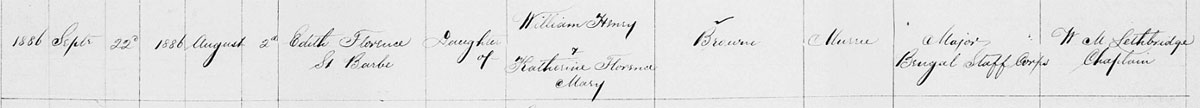 1886 Septr 22d 1886 August 2d Edith Florence St Barbe Daughter of William Henry & Katherine Florence Mary Browne Murree Major Bengal Staff Corps W M Lethbridge Chaplain